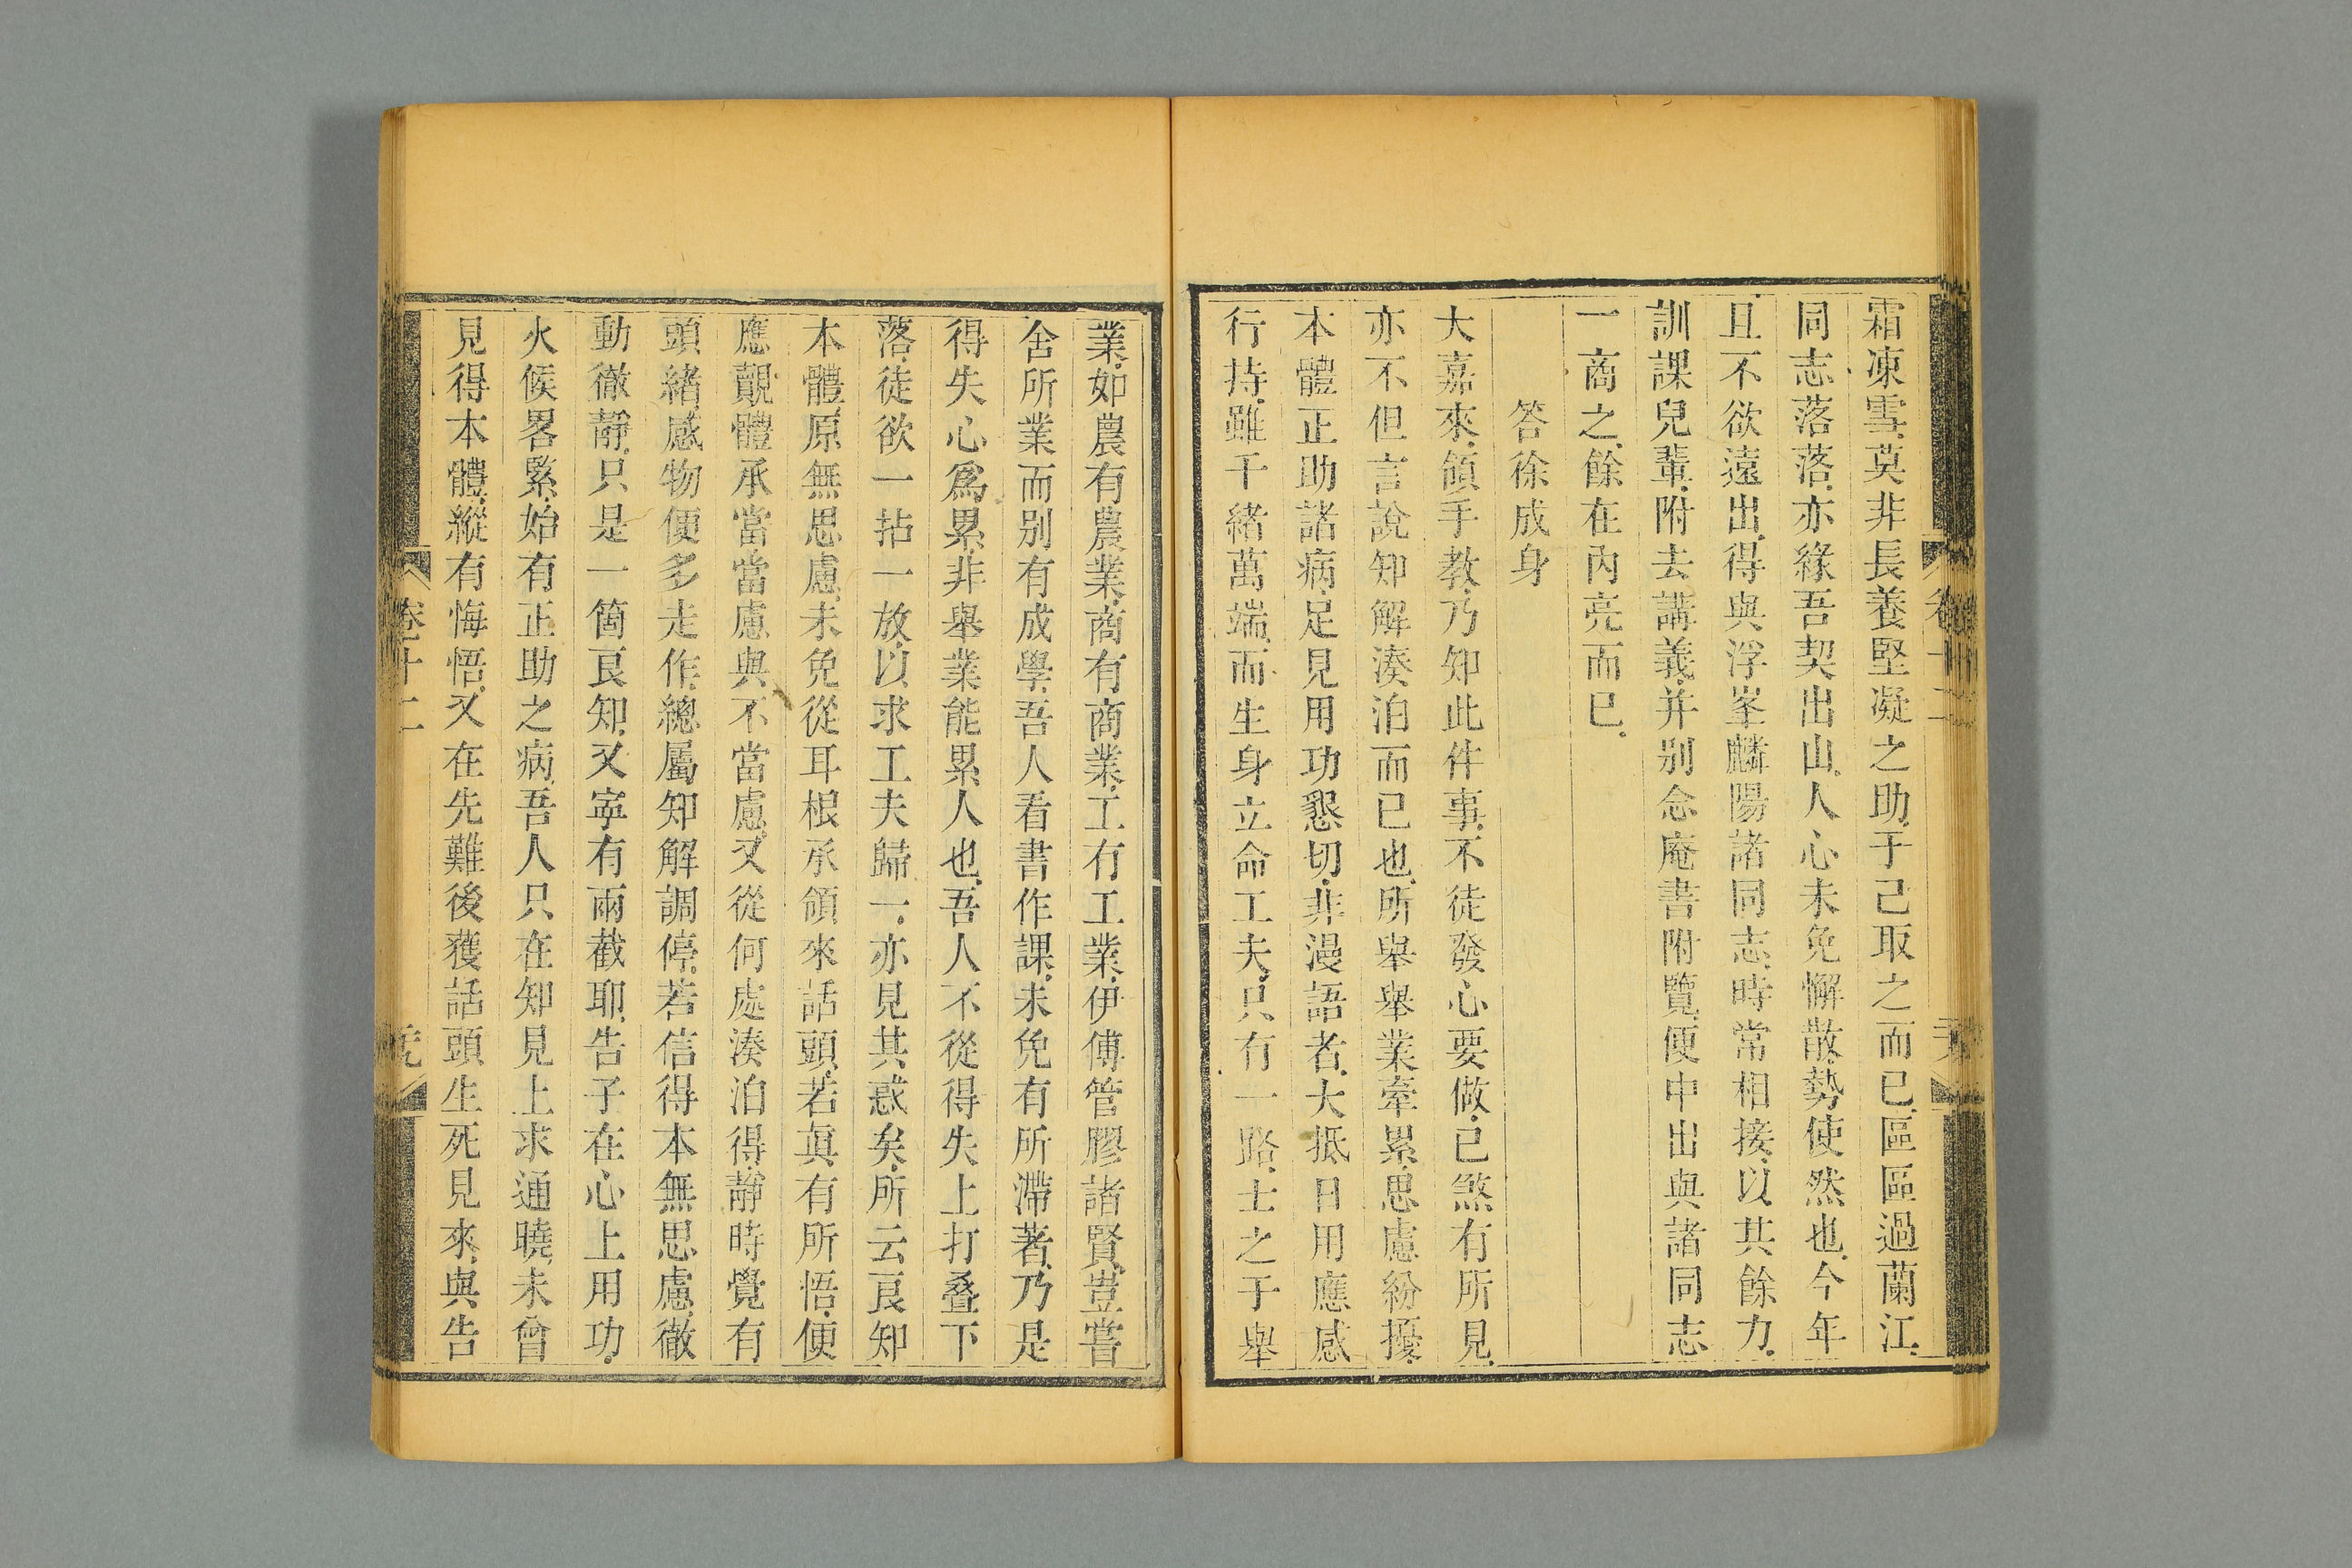 霜凍雪莫非長養堅凝之助于己取之而已區區過蘭江
同志落落亦緣吾契出山人心未免懈散勢使然也今年
且不欲遠出得與浮峯麟陽諸同志時常相接以其餘力
訓課兒輩附去講義并别念庵書附覽便中出與諸同志
一商之餘在內亮而已
答徐成身
大嘉來領手教乃知此件事不徒發心要做已煞有所見
亦不但言說知解湊泊而已也所舉舉業牽累思慮紛擾
本體正助諸病足見用功懇切非漫語者大抵日用應感
行持雖千緒萬端而生身立命工夫只有一路士之于舉
業如農有農業商有商業工有工業伊傅管膠諸賢豈嘗
舍所業而别有成學吾人看書作課未免有所滯著乃是
得失心爲累非舉業能累人也吾人不從得失上打叠下
落徒欲一拈一放以求工夫歸一亦見其惑矣所云良知
本體原無思慮未免從耳根承領來話頭若真有所悟便
應觀體承當當慮與不當慮又從何處湊泊得靜時覺有
頭緒感物便多走作總屬知解調停若信得本無思慮徹
動徹靜只是一箇良知又寧有兩截耶告子在心上用功
火候畧緊始有正助之病吾人只在知見上求通曉未曾
見得本體縱有悔悟又在先難後獲話頭生死見來與告
卷十二